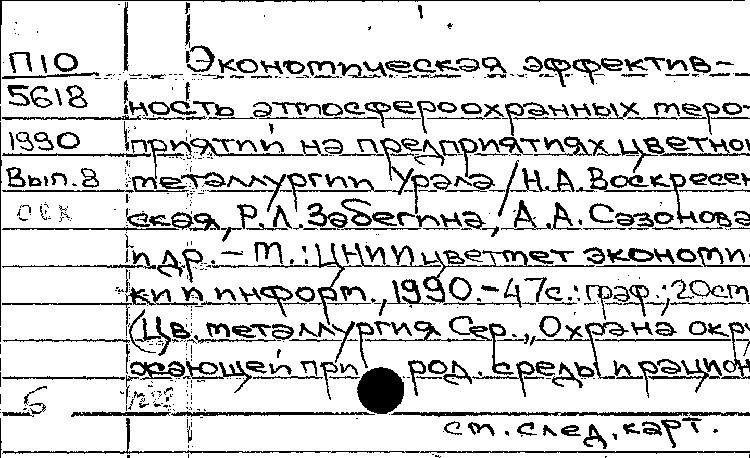 П10 Экономическая эффектив-
5618 ность атмосфероохранных меро-
1990 приятий на предприятиях цветной
Вып.8 металлургии Урала / Н.А. Воскресен
ская, Р.Л. Забегина, А.А. Сазонова
и др. – М.: ЦНИИцветмет экономи
ки и информ., 1990. – 47с.: граф.; 20см
(Цв. металлургия. Сер. „Охрана окру
жающей природ. среды и рацион
Б
см. след. карт.